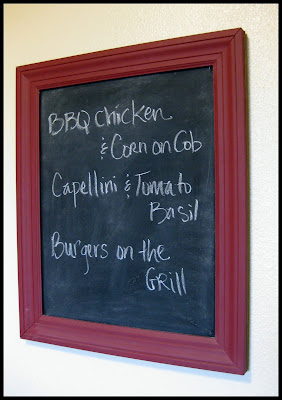 BBQ Chicken
& Corn on Cob
Capellini & Tomato
Basil
Burgers on the
Grill